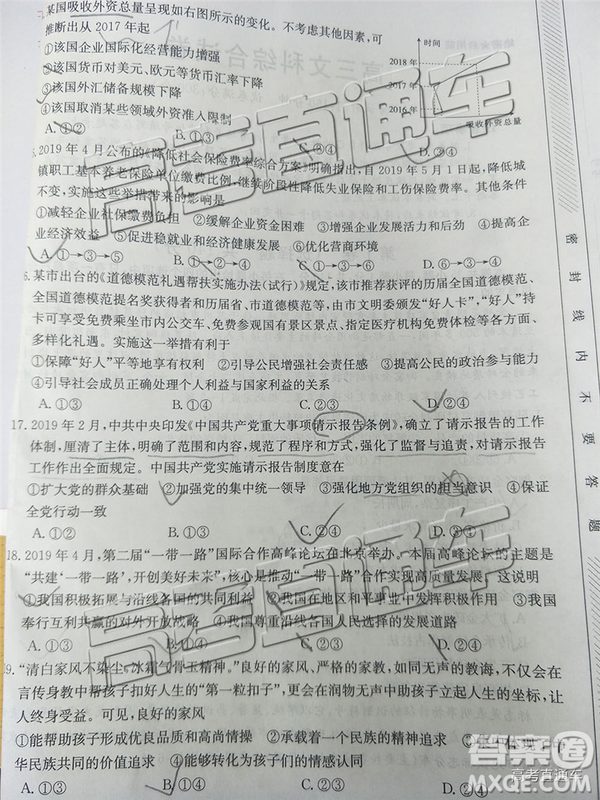 某国吸收外资总量呈现如右图所示的变化。不考虑其他因素,可
推断出从2017年起
①该国企业国际化经营能力增强
②该国货币对美元、欧元等货币汇率下降
③该国外汇储备规模下降
④该国取消某些领域外资准入限制
A.①② B.①③ D.②④
时间
2018年
2017年
2016年
吸收外资总量
2019年4月公布的《降低社会保险费率综合方案》明确指出,自2019年5月1日起,降低城
镇职工基本养老保险单位缴费比例,继续阶段性降低失业保险和工伤保险费率。其他条件
不变,实施这些举措带来的影响是
①减轻企业社保缴费负担 ②缓解企业资金困难 ③增强企业发展活力和后劲 ④提高企
业经济效益 ⑤促进稳就业和经济健康发展 ⑥优化营商环境
A.①→③→⑤ B.①→③→⑥ C.②→③→⑤ D.②→④→⑥
6.某市出台的《道德模范礼遇帮扶实施办法(试行)》规定,该市推荐评选的历届市、省道德模范、
全国道德模范提名奖获得者和历届省、市道德模范等,由市文明委颁发“好人卡”,“好人”持
卡可享受免费乘坐市内公交车、免费参观国有景区景点、指定医疗机构免费体检等丰富多彩、
多样化礼遇。实施这一举措有利于
①保障“好人”平等地享有权利 ②引导公民增强社会责任感 ③提高公民的政治参与能力
④引导社会成员正确处理个人利益与国家利益的关系
A.①③ B.①④ C.②③ D.②④
17.2019年2月,中共中央印发《中国共产党重大事项请示报告条例》,确立了请示报告的工作
体制,厘清了主体,明确了范围和内容,规范了程序和方式,强化了监督与追责,对请示报告
工作作出全面规定。中国共产党实施请示报告制度意在
①扩大党的群众基础 ②强化党的集中统一领导 ③强化地方党组织的担当意识 ④保证
全党行动一致
A.①② B.①③ C.②④ D.③④
18.2019年4月,第二届“一带一路”国际合作高峰论坛在北京举办。本届高峰论坛的主题是
“共建‘一带一路’,开创美好未来”,核心是推动“一带一路”合作实现高质量发展。这说明
①我国积极拓展与沿线各国的共同利益 ②我国在地区和平事业中发挥积极作用 ③我国
奉行互利共赢的对外开放战略 ④我国尊重沿线各国人民选择的发展道路
A.①③ B.①④ C.②③ D.②④
19.“清白家风不染尘,冰霜气骨玉精神。”良好的家风、严格的家教,如同无声的教诲,不仅会在
言传身教中帮孩子扣好人生的“第一粒扣子”,更会在润物无声中助孩子立起人生的坐标,让
人终身受益。可见,良好的家风
①能帮助孩子形成优良品质和高尚情操 ②承载着一个民族的精神追求
华民族共同的价值追求 ④能够转化为孩子们的情感认同
A.①③ B.②④ C.①④ D.②③
密封线内不要答题
高考直通车
高考直通车
答案圈
MXQE.COM
高考直通车